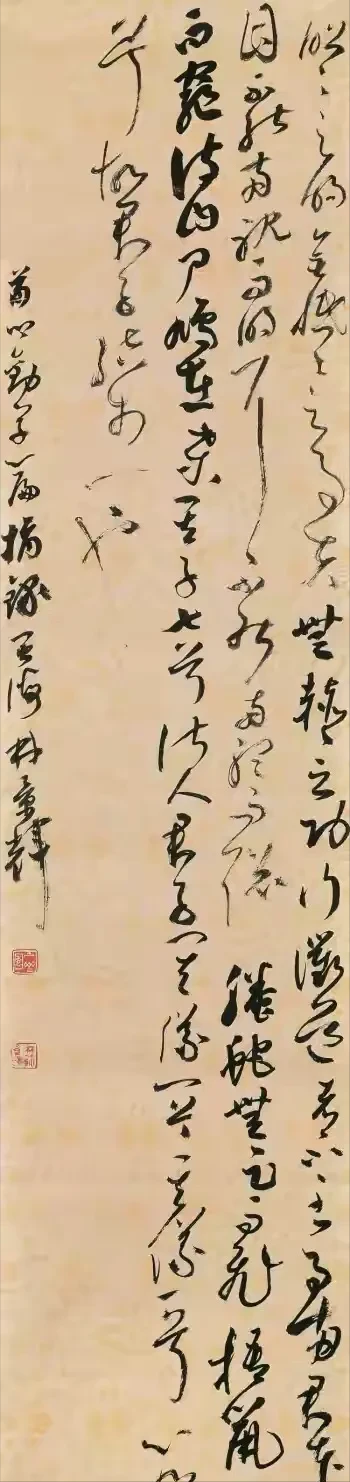 昭昭之明無惛惛之事者無赫赫之功行衢道者不至事兩君者
目不能兩視而明耳不能兩聽而聰螣蛇無足而飛梧鼠
而窮詩曰尸鳩在桑其子七兮淑人君子其儀一兮其儀一兮心如
兮故君子結於一也
勸學篇摘錄林景輝